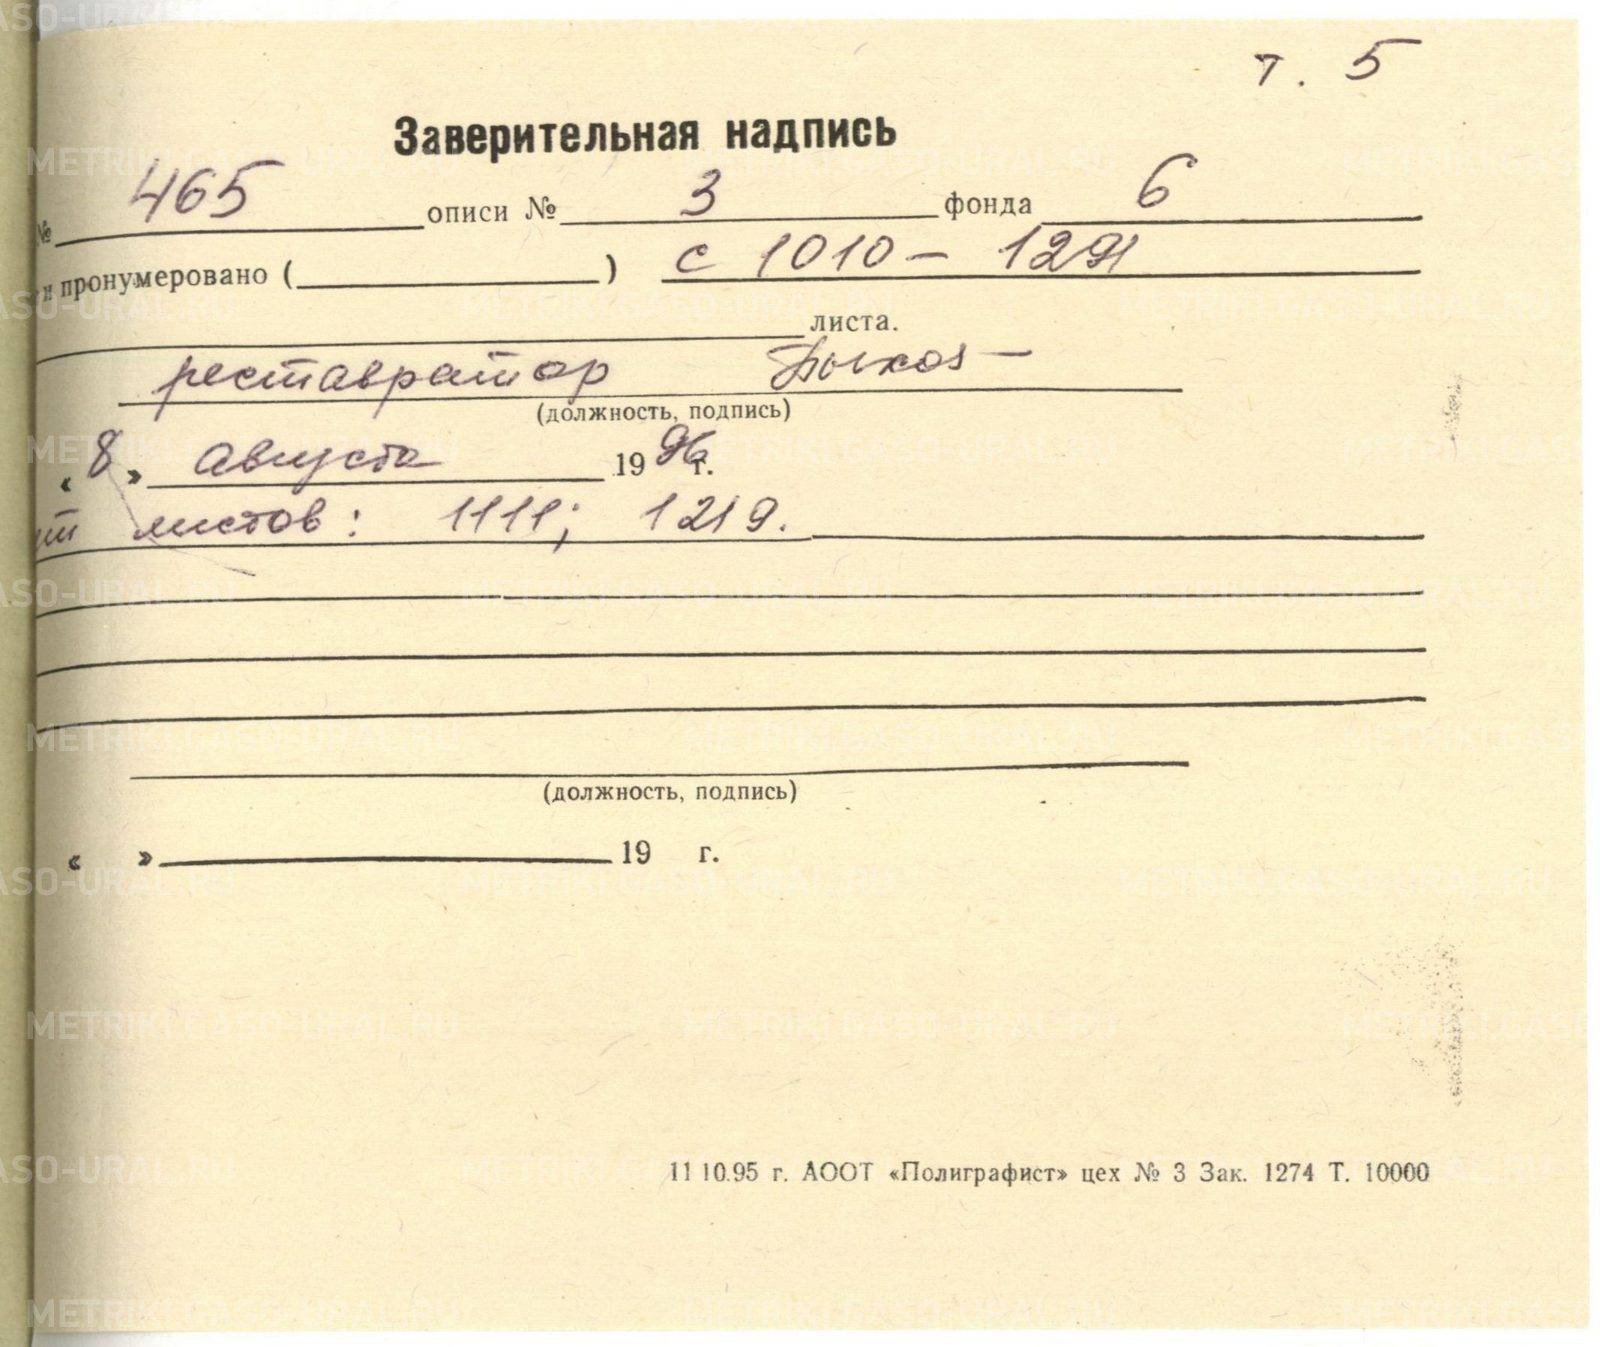 т. 5
Заверительная надпись
№ 465 описи № 3 фонда 6
и пронумеровано ( ) с 1010 – 1291
листа.
реставратор
(должность, подпись)
« 8 » августа 1996 г.
листов: 1111; 1219.
(должность, подпись)
« » 19 г.
11 10.95 г. АООТ «Полиграфист» цех № 3 Зак. 1274 Т. 10000
METRIKI.GASO-URAL.RU